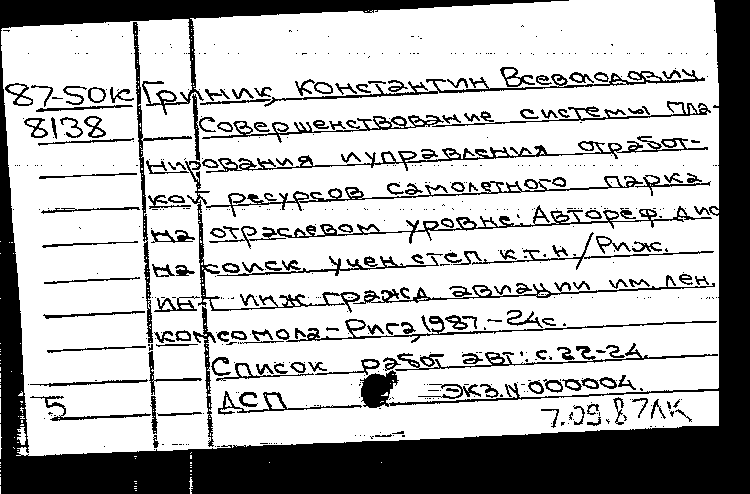 87-50к Гриник, Константин Всеволодович
8138 Совершенствование системы пла-
нирования и управления отработ-
кой ресурсов самолетного парка
на отраслевом уровне: Автореф. дис
на соиск. учен. степ. к.т.н. / Риж.
ин-т инж. гражд. авиации им. лен.
комсомола. - Рига, 1987. - 24с.
Список работ авт.: с. 22-24.
5 ДСП ЭКЗ. N 000004.
7.09.87 ЛК